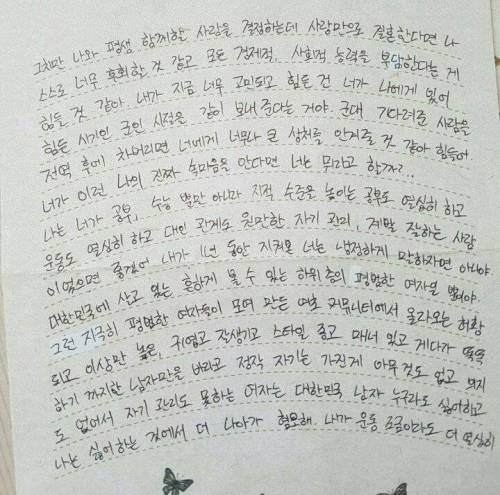 그치만 나와 평생 함께할 사람을 결정하는데 사랑만으로 결혼한다면 나
스스로 너무 후회할 것 같고 모든 경제적, 사회적 능력을 부담한다는 게
힘들 것 같아. 내가 지금 너무 고민되고 힘든 건 너가 나에게 있어
힘든 시기인 군인 시절은 같이 보내 주다는 거야. 군대 기다려준 사람을
전역 후에 차버리면 너에게 너무나 큰 상처를 안겨줄 것 같아 힘들어.
너가 이런 나의 진짜 속마음을 안다면 너는 뭐라고 할까?..
나는 너가 공부, 수능 뿐만 아니라 지적 수준을 높이는 공부도 열심히 하고
운동도 열심히 하고 대인 관계도 원만한 자기 관리, 계발 잘하는 사람
이었으면 좋겠어 내가 1년 동안 지켜본 너는 냉정하게 말하자면 아니야
대한민국에 살고 있는 흔하게 볼 수 있는 하위 층의 평범한 여자일 뿐이야.
그런 지극히 평범한 여자들이 모여 만든 여초 커뮤니티에서 올라오는 허황
되고 이상만 높은, 귀엽고 잘생기고 스타일 좋고 매너 있고 게다가 똑똑
하기 까지한 남자만을 바라고 정작 자기는 가진게 아무 것도 없고 의지
도 없어서 자기 관리도 못하는 여자는 대한민국 남자 누구라도 싫어하고
나는 싫어하는 것에서 더 나아가 혐오해. 너가 운동 조금이라도 더 열심히